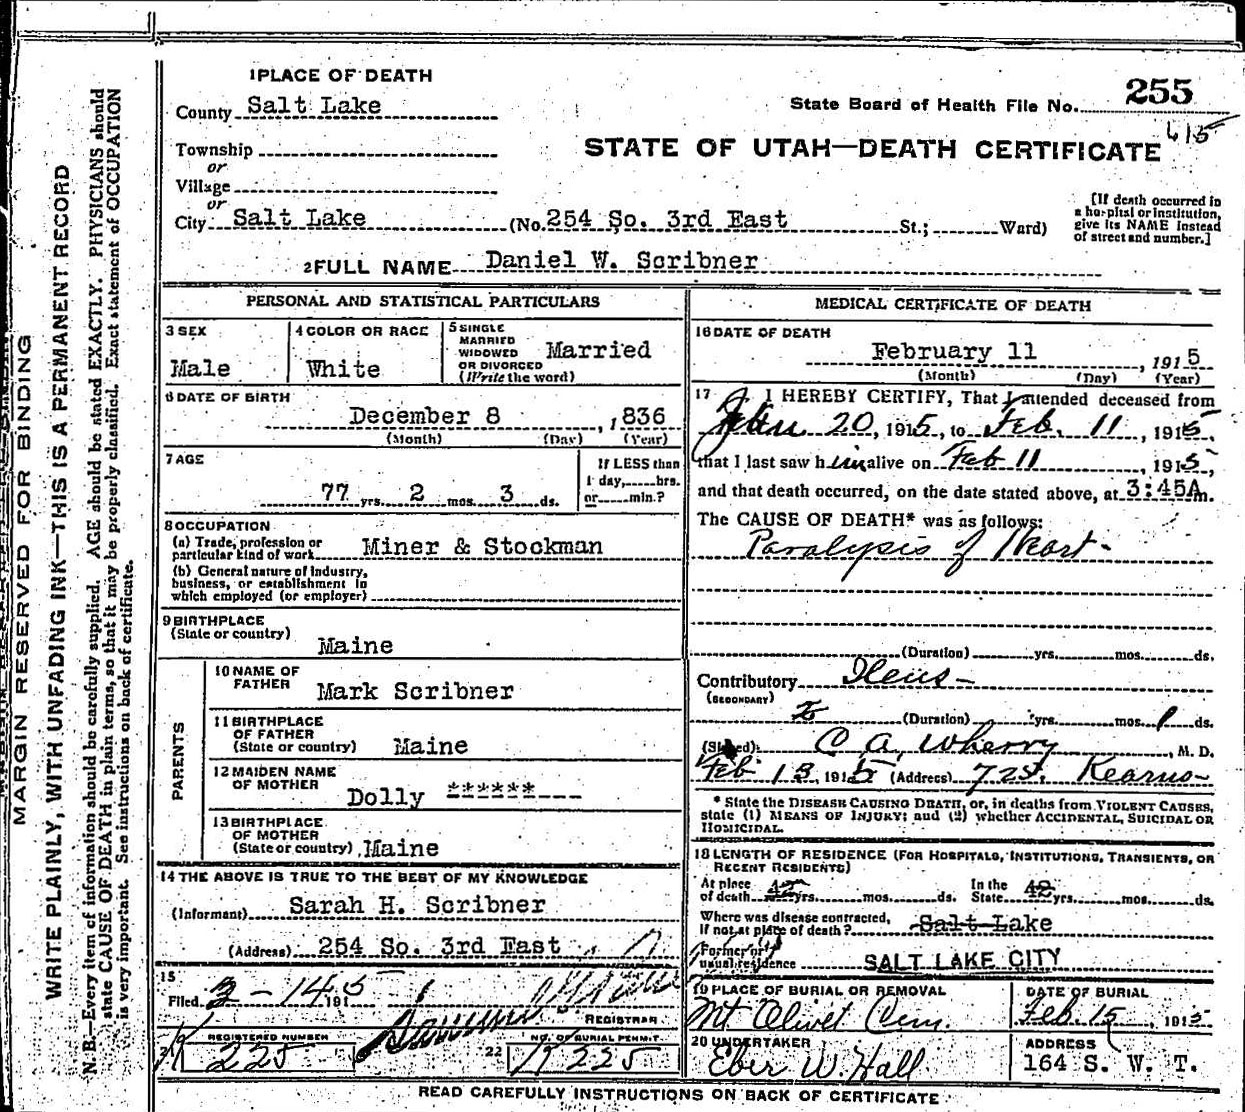 MARGIN RESERVED FOR BINDING
WRITE PLAINLY, WITH UNFADING INK—THIS IS A PERMANENT RECORD
N. B.—Every item of information should be carefully supplied. AGE should be stated EXACTLY. PHYSICIANS should
state CAUSE OF DEATH in plain terms, so that it may be properly classified. Exact statement of OCCUPATION
is very important. See instructions on back of certificate.
1 PLACE OF DEATH
County Salt Lake
State Board of Health File No. 255
615
Township
or
STATE OF UTAH—DEATH CERTIFICATE
Village
or
City Salt Lake (No. 254 So. 3rd East St.; Ward)
[If death occurred in
a hospital or institution,
give its NAME instead
of street and number.]
2 FULL NAME Daniel W. Scribner
PERSONAL AND STATISTICAL PARTICULARS
3 SEX
Male
4 COLOR OR RACE
White
5 SINGLE
MARRIED
WIDOWED
OR DIVORCED
(Write the word)
Married
6 DATE OF BIRTH
December 8, 1836
(Month) (Day) (Year)
7 AGE
77 yrs. 2 mos. 3 ds.
If LESS than
1 day, hrs.
or min.?
8 OCCUPATION
(a) Trade, profession or
particular kind of work Miner & Stockman
(b) General nature of industry,
business, or establishment in
which employed (or employer)
9 BIRTHPLACE
(State or country)
Maine
PARENTS
10 NAME OF
FATHER Mark Scribner
11 BIRTHPLACE
OF FATHER
(State or country) Maine
12 MAIDEN NAME
OF MOTHER
Dolly ******
13 BIRTHPLACE
OF MOTHER
(State or country) Maine
14 THE ABOVE IS TRUE TO THE BEST OF MY KNOWLEDGE
(Informant) Sarah H. Scribner
(Address) 254 So. 3rd East
15
Filed 2-14 1915
REGISTRAR
REGISTERED NUMBER
225
22
NO. OF BURIAL PERMIT
225
MEDICAL CERTIFICATE OF DEATH
16 DATE OF DEATH
February 11, 1915
(Month) (Day) (Year)
17 I HEREBY CERTIFY, That I attended deceased from
Jan 20, 1915, to Feb. 11, 1915,
that I last saw him alive on Feb 11, 1915,
and that death occurred, on the date stated above, at 3:45A m.
The CAUSE OF DEATH* was as follows:
Paralysis of Heart-
(Duration) yrs. mos. ds.
Contributory Ileus-
(SECONDARY)
(Duration) yrs. mos. 1 ds.
(Signed) C A. Wherry, M. D.
Feb 13, 1915 (Address) 725 Kearns-
* State the DISEASE CAUSING DEATH, or, in deaths from VIOLENT CAUSES,
state (1) MEANS OF INJURY; and (2) whether ACCIDENTAL, SUICIDAL OR
HOMICIDAL.
18 LENGTH OF RESIDENCE (FOR HOSPITALS, INSTITUTIONS, TRANSIENTS, OR
RECENT RESIDENTS)
At place In the
of death 42 yrs. mos. ds. State 42 yrs. mos. ds.
Where was disease contracted,
if not at place of death? Salt Lake
Former or
usual residence SALT LAKE CITY
19 PLACE OF BURIAL OR REMOVAL
Mt Olivet Cem.
DATE OF BURIAL
Feb. 15, 1915
20 UNDERTAKER
Eber W. Hall
ADDRESS
164 S. W. T.
READ CAREFULLY INSTRUCTIONS ON BACK OF CERTIFICATE